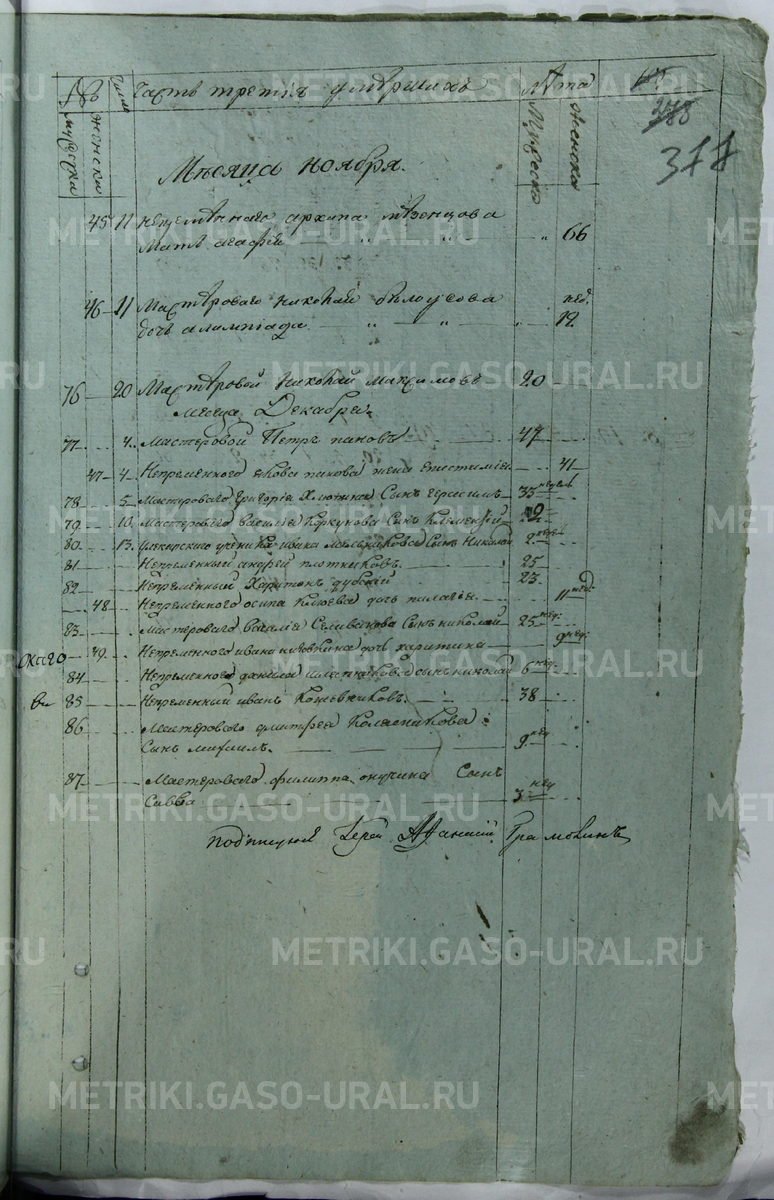 № Число Часть третія умершихъ Лѣта
мужеска женска Мужеска женска
378
377
Мѣсяца ноября.
45 11 непремѣннаго архипа мѣзенцова
мать агафья " " " 66
46 11 Мастѣроваго николай бѣлоусова нед.
дочь алимпіада " " " 12
76 20 Мастѣровой николай максимовъ 20
месяца Декабря
77 4. Мастеровой Петръ пановъ 47
47 4. Непременного якова панова жена епистимія 41
78 5 Мастероваго Григорія Хлопина Сынъ герасимъ 35 недель
79 10. Мастероваго василія Коркунова Сынъ Климентий 2
80 13. ученика ивана мельникова Сынъ Николай 2 неде
81 Непременный андрей плотниковъ. 25
82 Непременный Харитонъ дубский 23.
48 Непременного осипа Клюева дочь пилагія 11 нед
83 Мастероваго василія Селиванова Сынъ николай 25 нед:
49 Непременного ивана дочь харитина 9 нед
84 Непременного данила сынъ николай 6 нед
85 Непременный иванъ Кожевниковъ. 38
86 Мастероваго дмитрея Колясникова
Сынъ михаилъ. 9 нед
87 Мастероваго филиппа онучина Сынъ
Савва 3 нед
подписуюся Іерей Афанасій Грамолинъ
METRIKI.GASO-URAL.RU